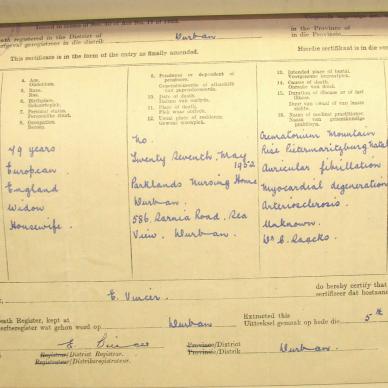 Death registered in the District of
Durban
in the Province of
in die Provinsie
This certificate is in the form of the entry as finally amended.
Hierdie sertifikaat is in die
4. Age.
Ouderdom.
5. Race.
Ras.
6. Birthplace.
Geboorteplek.
7.
8. Occupation.
Beroep.
9. Pensioner or dependent of pensioner.
10. Date of death.
Datum van oorlyde.
11. Place of death.
Plek waar oorlede.
12. Usual place of residence.
Gewone woonplek.
13. Intended place of burial.
14. Cause of death.
Oorsaak van dood.
15. Duration of disease or of last illness.
16. Name of medical practitioner.
79 years
European
England
Widow
Housewife.
No.
Twenty Seventh May
1952
Parklands Nursing Home
Durban
586, Sarnia Road, Sea
View, Durban.
Crematorium Mountain
Rise Pietermaritzburg Natal
Auricular fibrillation
Myocardial degeneration
Arteriosclerosis.
Unknown.
Dr
do hereby certify that
sertifiseer dat
E.
Death Register, kept at
Durban
Extracted this
Uittreksel gemaak op hede die
5th
E.
Registrar/District Registrar.
Registrateur/Distriksregistrateur.
Province/District
Provinsie/Distrik
Durban.